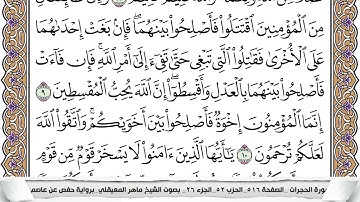 مِنَ ٱلْمُؤْمِنِينَ ٱقْتَتَلُوا۟ فَأَصْلِحُوا۟ بَيْنَهُمَا ۖ فَإِنۢ بَغَتْ إِحْدَىٰهُمَا
عَلَى ٱلْأُخْرَىٰ فَقَٰتِلُوا۟ ٱلَّتِى تَبْغِى حَتَّىٰ تَفِىٓءَ إِلَىٰٓ أَمْرِ ٱللَّهِ ۚ فَإِن فَآءَتْ
فَأَصْلِحُوا۟ بَيْنَهُمَا بِٱلْعَدْلِ وَأَقْسِطُوٓا۟ ۖ إِنَّ ٱللَّهَ يُحِبُّ ٱلْمُقْسِطِينَ ٩
إِنَّمَا ٱلْمُؤْمِنُونَ إِخْوَةٌ فَأَصْلِحُوا۟ بَيْنَ أَخَوَيْكُمْ ۚ وَٱتَّقُوا۟ ٱللَّهَ
لَعَلَّكُمْ تُرْحَمُونَ ١٠ يَٰٓأَيُّهَا ٱلَّذِينَ ءَامَنُوا۟ لَا يَسْخَرْ قَوْمٌ مِّن قَوْمٍ
سورة الحجرات _ الصفحة ٥١٦ _ الحزب ٥٢ _ الجزء ٢٦ _ بصوت الشيخ ماهر المعيقلي _ برواية حفص عن عاصم